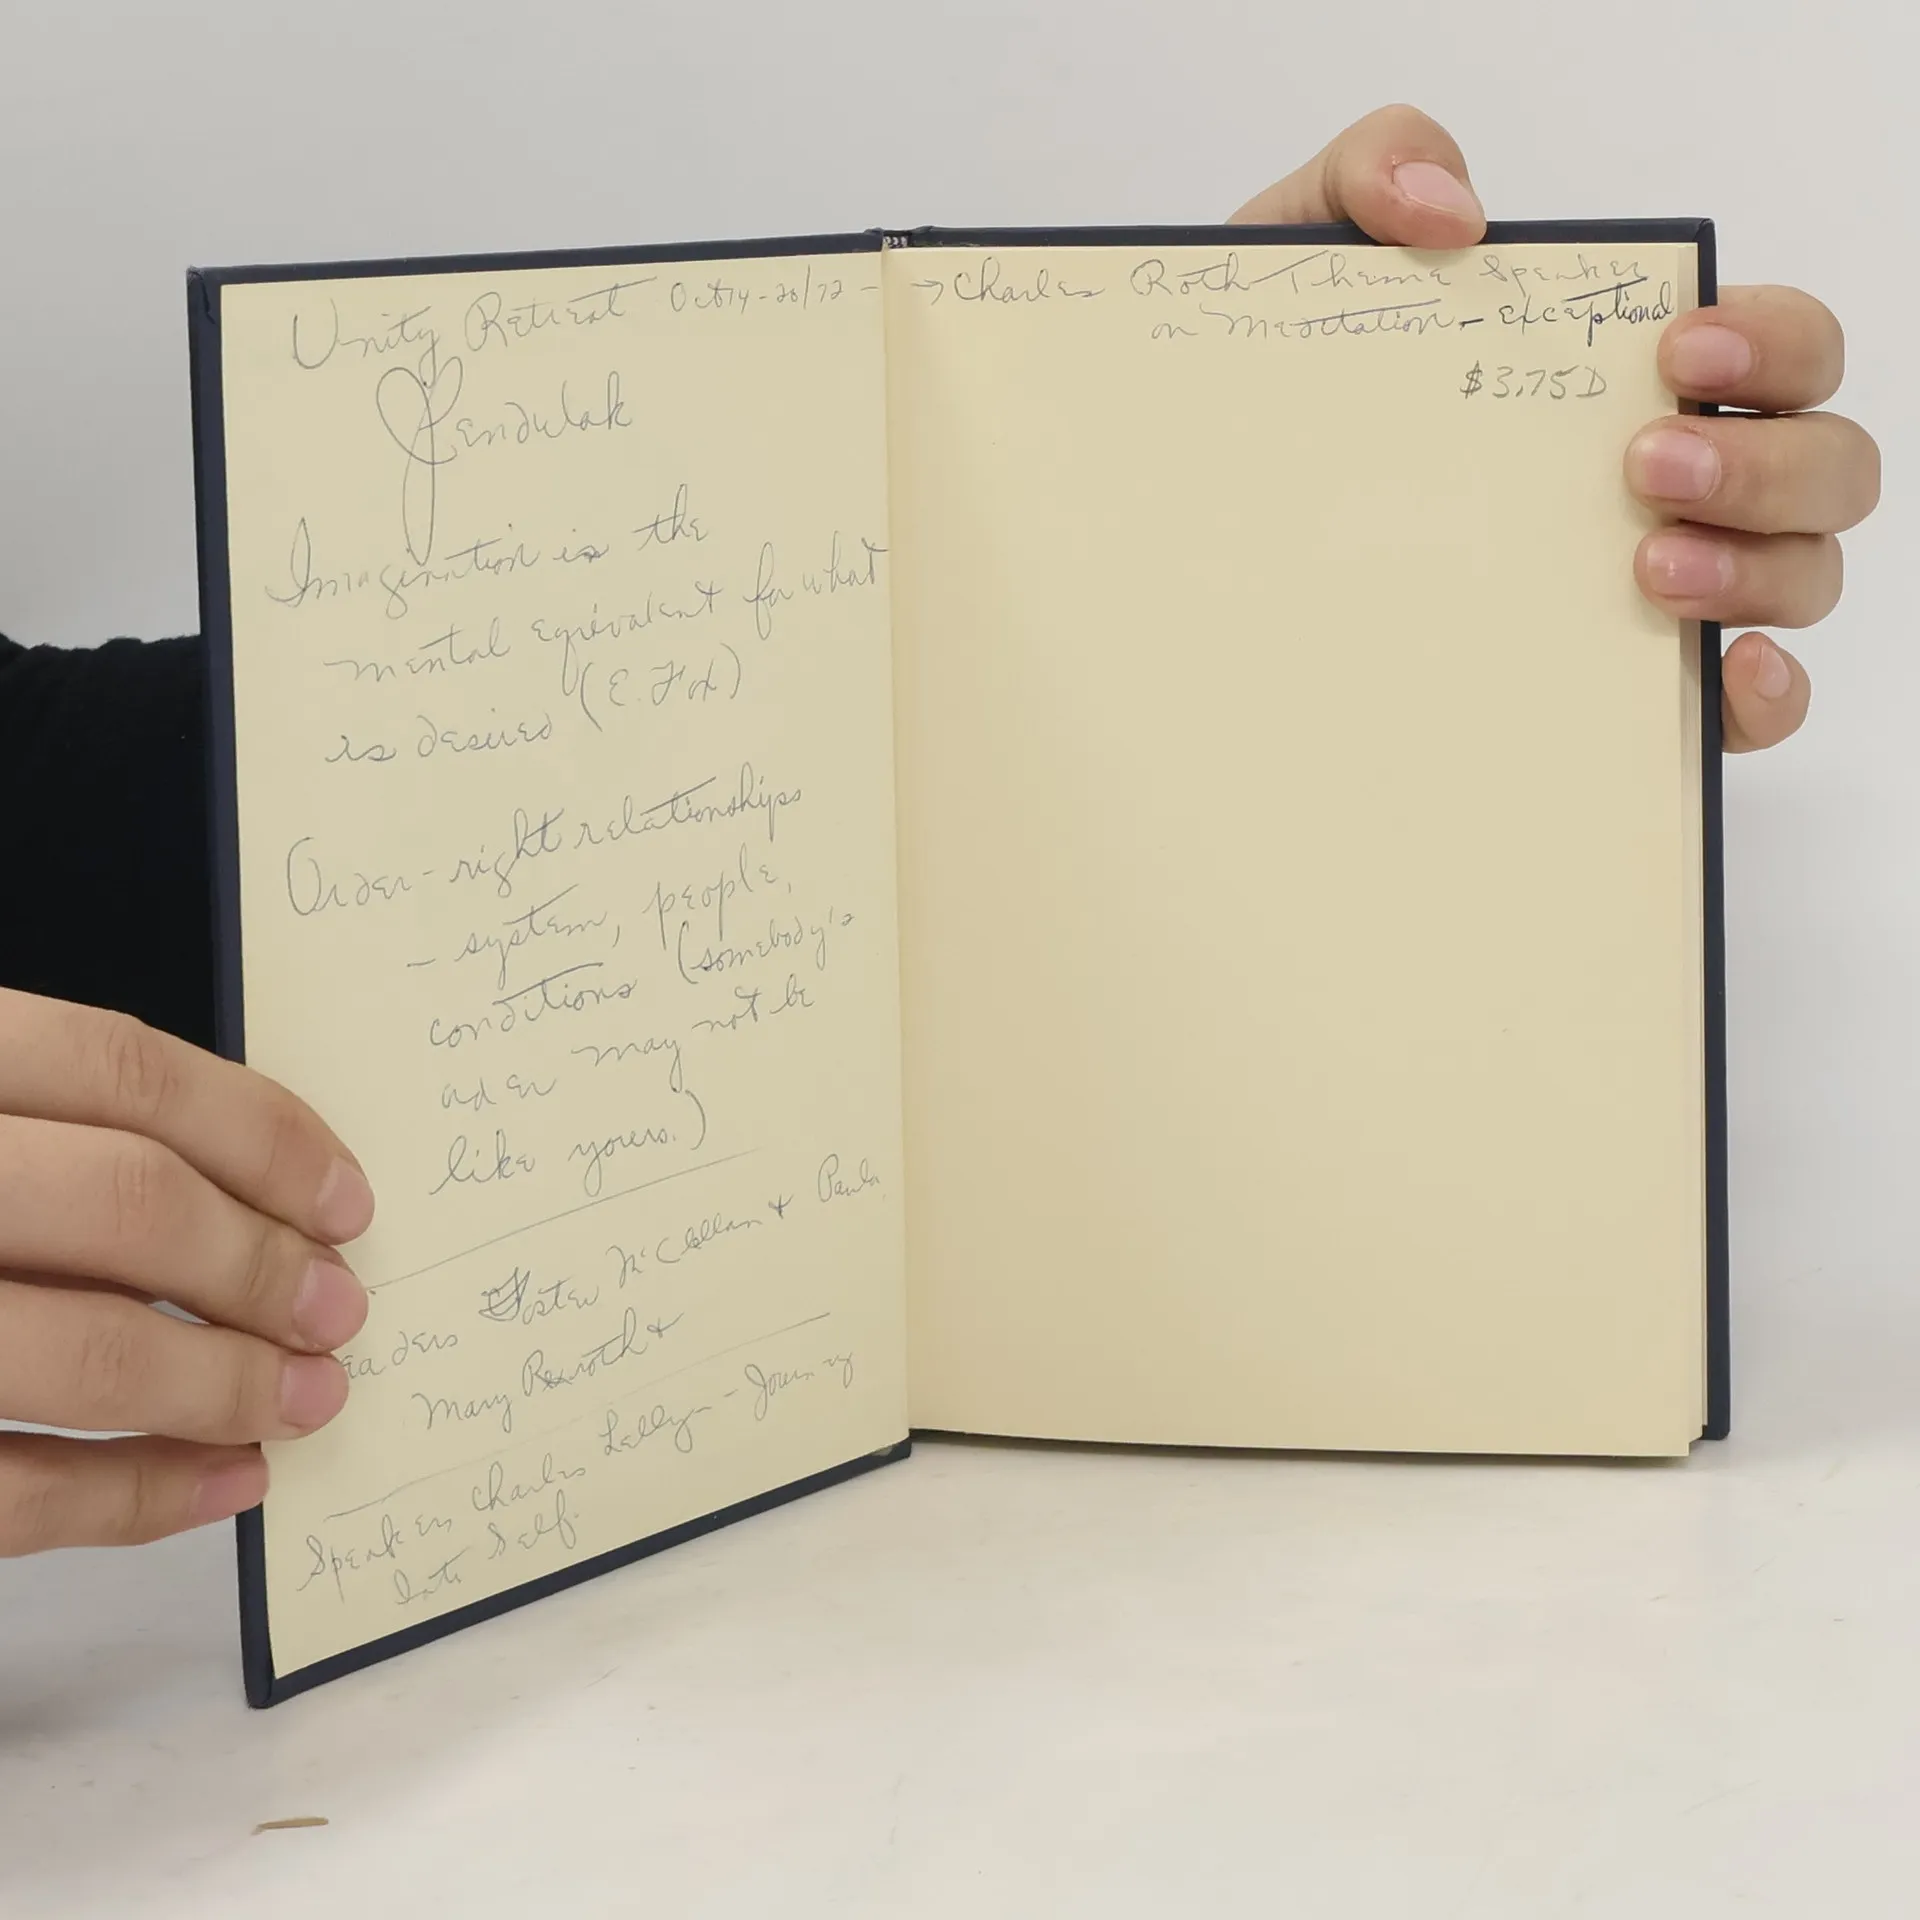 Unity Retreat Oct 14-20/72 -
Jendulak
Imagination is the
mental equivalent for what
is desired (E. Fox)
Order - right relationships
- system, people,
conditions (somebody's
order may not be
like yours.)
Foster McClellan & Paula
Mary Rexroth &
Speakers Charles Lelly - Journey
Into Self.
→ Charles Roth Theme Speaker
on Meditation - exceptional
$3.75 D